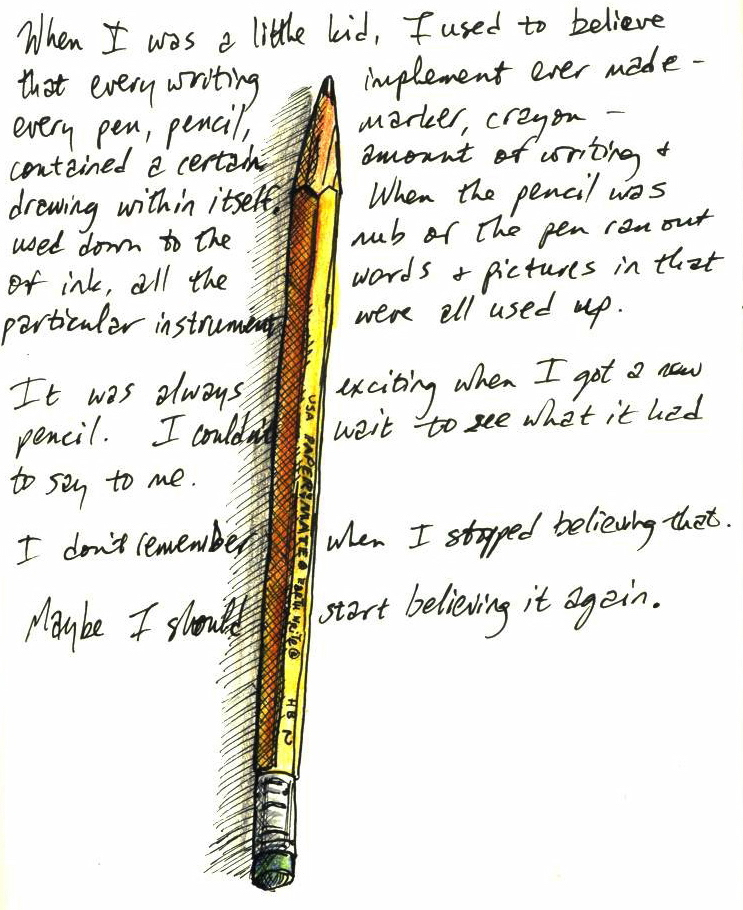 When I was a little kid, I used to believe
that every writing implement ever made -
every pen, pencil, marker, crayon -
contained a certain amount of writing &
drawing within itself. When the pencil was
used down to the nub or the pen ran out
of ink, all the words & pictures in that
particular instrument were all used up.
It was always exciting when I got a new
pencil. I couldn't wait to see what it had
to say to me.
I don't remember when I stopped believing that.
Maybe I should start believing it again.
USA PAPERMATE
HB 2